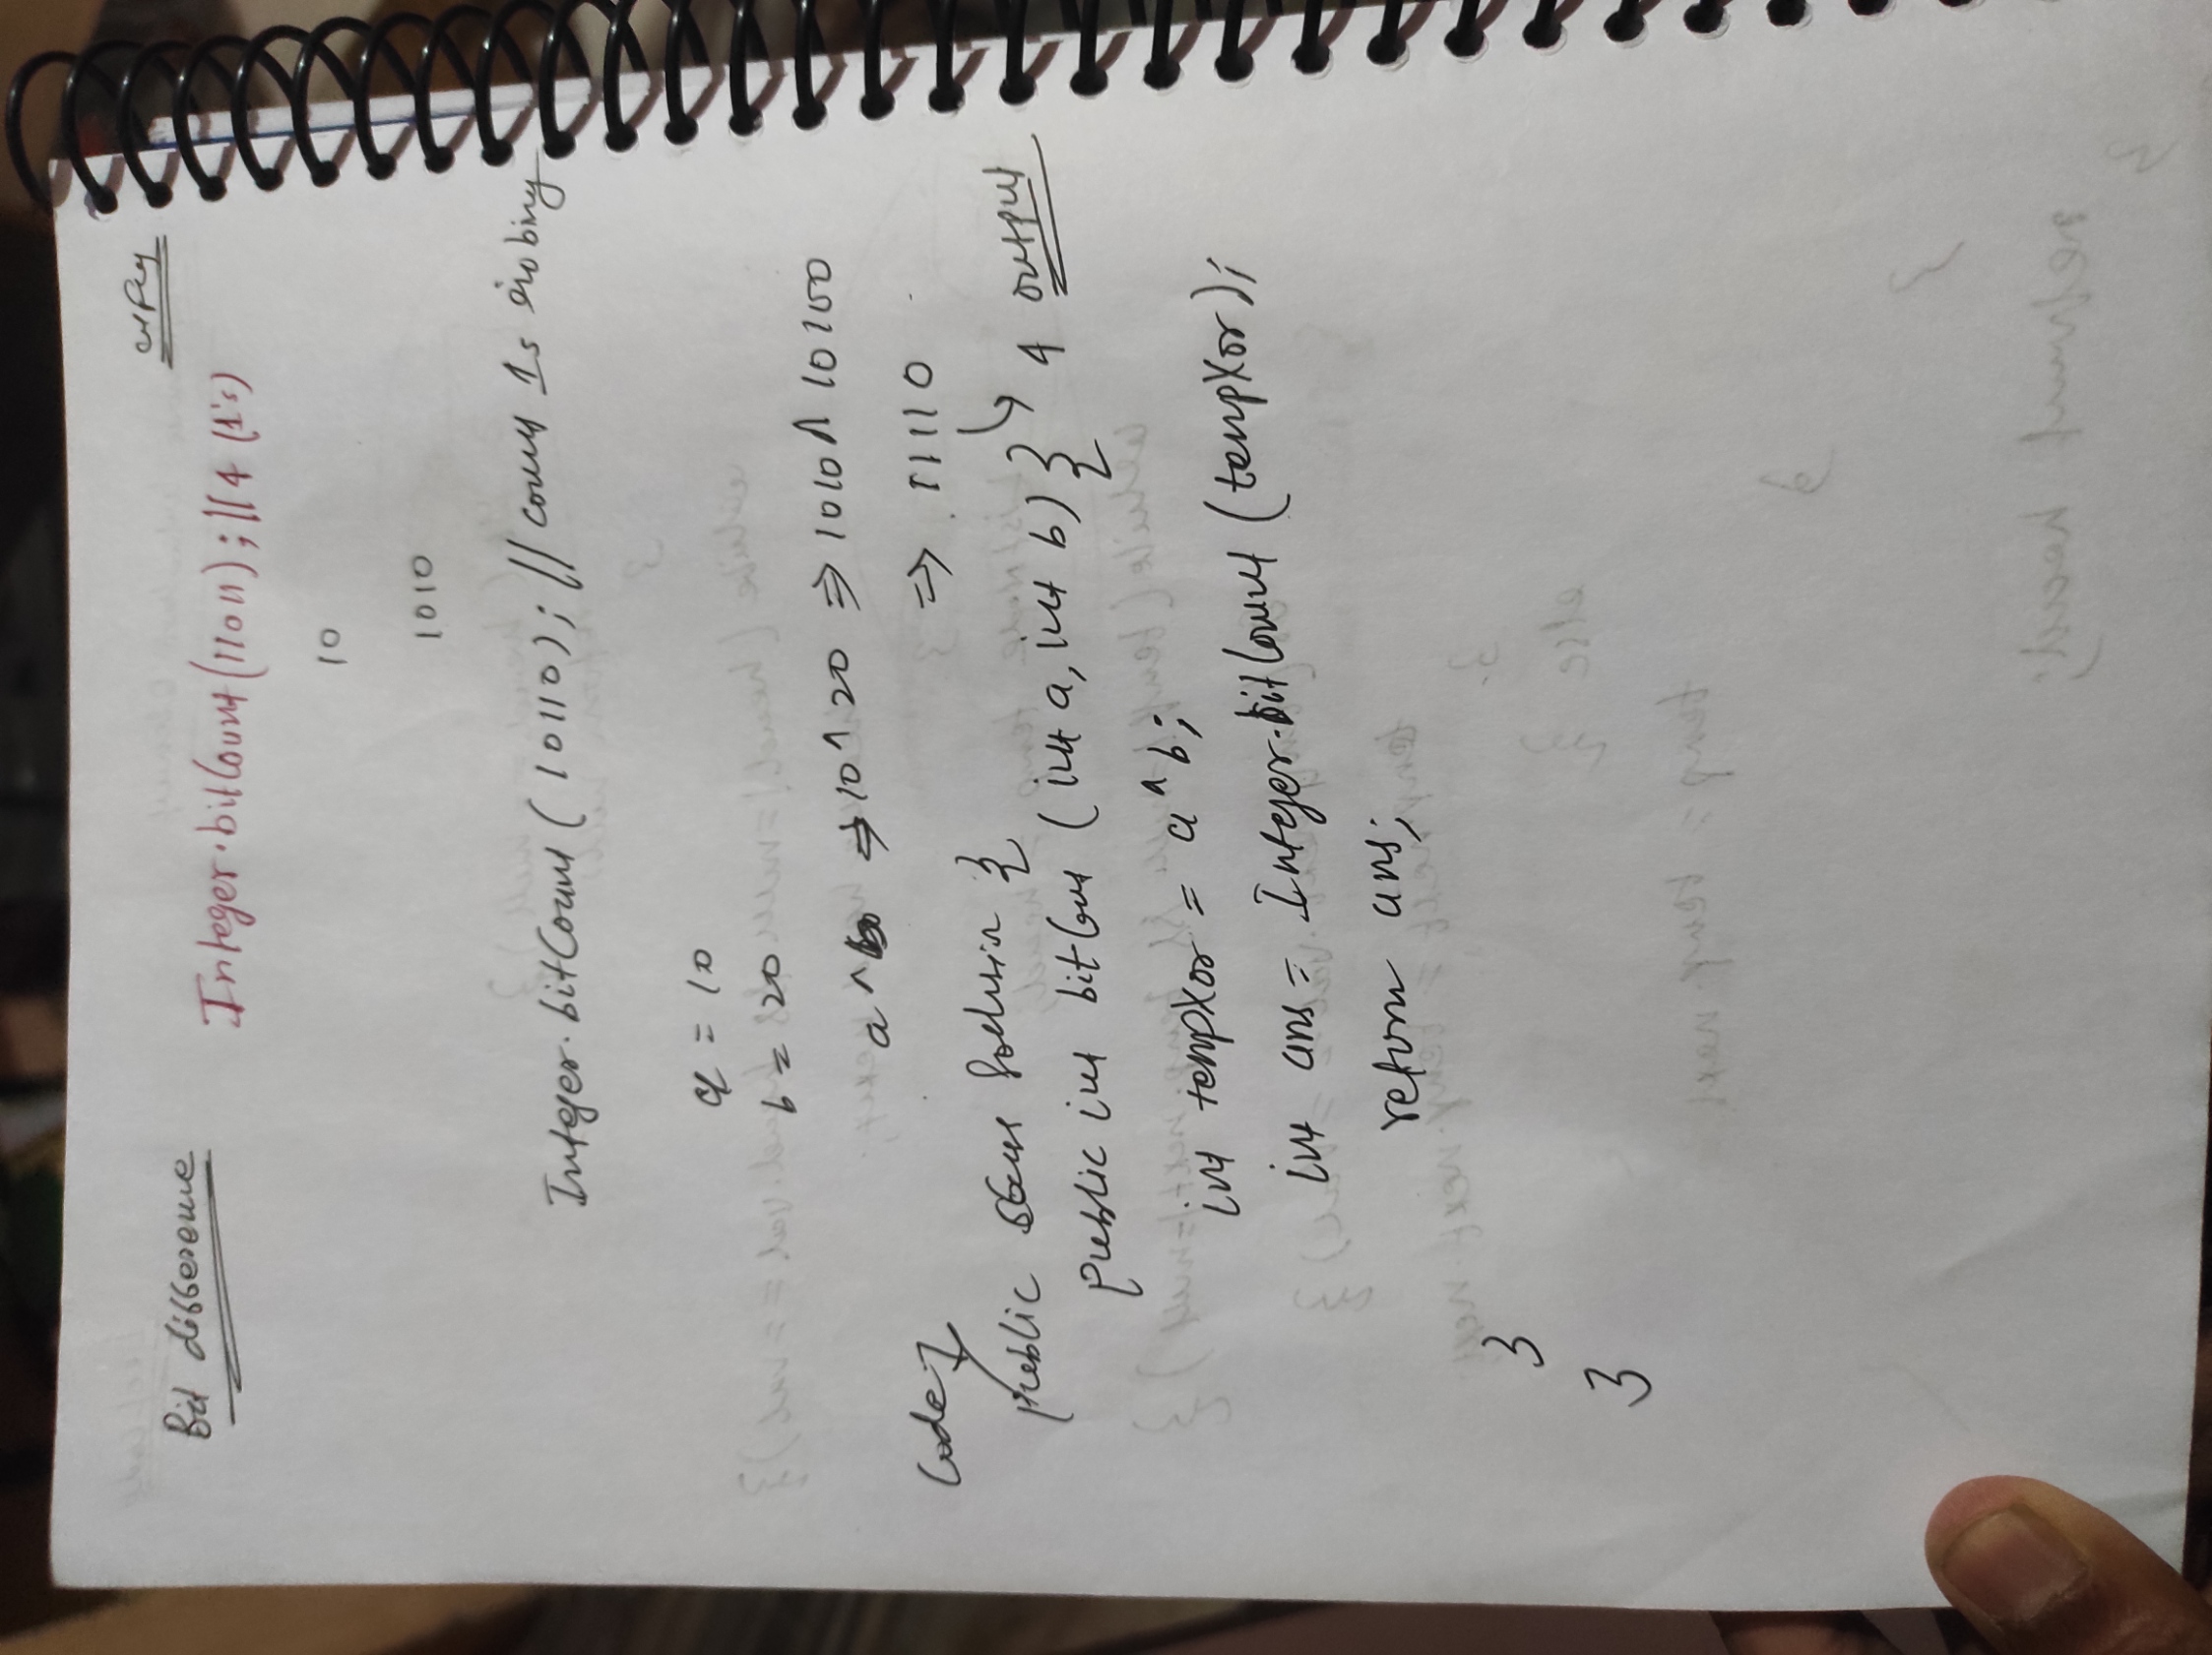 Bit difference
Integer.bitCount(11011); // 4 (1's)
10
1010
Integer.bitCount(10110); // count 1s
a = 10
b = 20
a ^ b => 10 ^ 20 => 1010 ^ 10100
=> 11110
Code
4 output
public Solution {
public int bitCount (int a, int b) {
int tempXor = a ^ b;
int ans = Integer.bitCount (tempXor);
return ans;
}
}